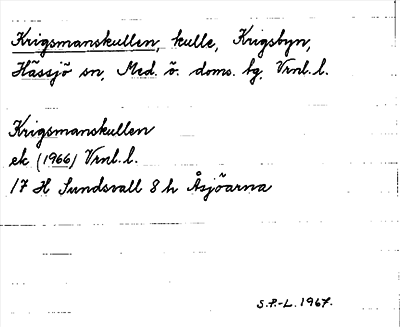 Krigsmanskullen, kulle, Krigsbyn,
Hässjö sn, Med. ö. doms. hg, Vrnl. l.
Krigsmanskullen
ek (1966) Vrnl. l.
17 H Sundsvall 8 h Åsjöarna
S.P.-L. 1967.